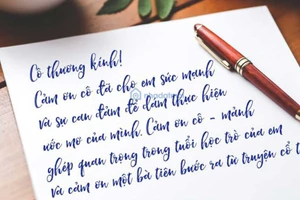 Cô thương kính!
Cảm ơn cô đã cho em sức mạnh
và sự can đảm để dám thực hiện
ước mơ của mình. Cảm ơn cô - mảnh
ghép quan trọng trong tuổi học trò của em
và cảm ơn một bà tiên bước ra từ truyện cổ t